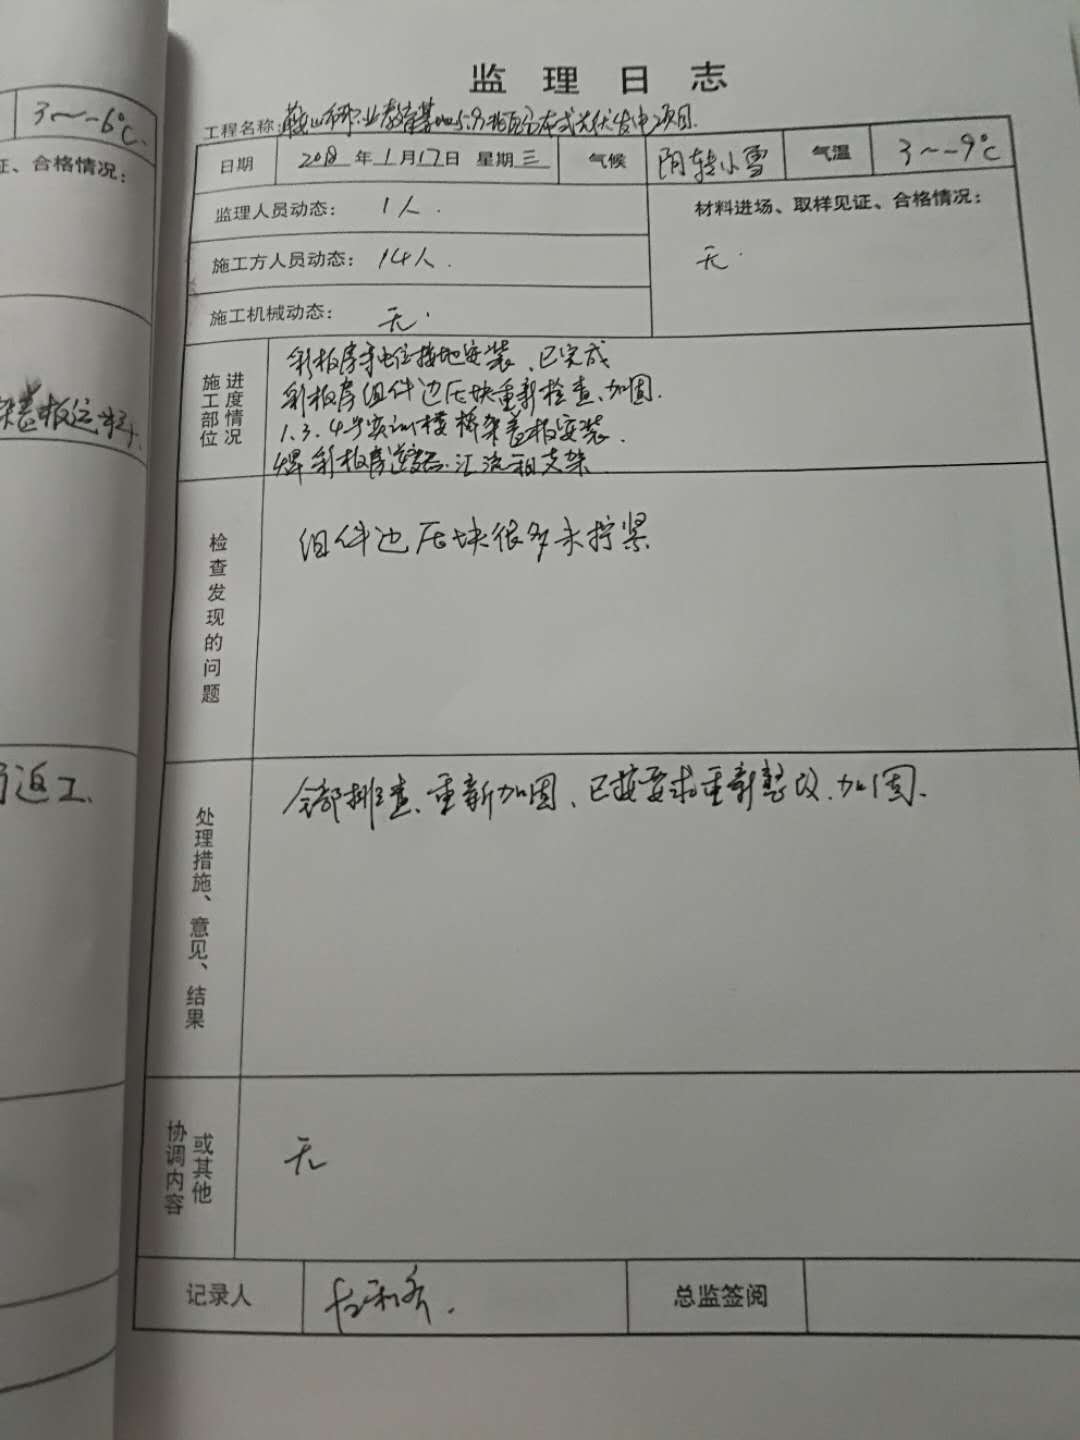 3～-6℃.
证、合格情况：
架盖板运料.
返工.
监理日志
工程名称：鞍山市职业教育基地5.9兆瓦分布式光伏发电项目.
日期 2018年1月17日 星期三 气候 阴转小雪 气温 3～-9℃
监理人员动态： 1人.
材料进场、取样见证、合格情况：
无.
施工方人员动态： 14人.
施工机械动态： 无.
施工部位进度情况
彩板房等电位接地安装、已完成
彩板房组件边压块重新检查、加固.
1.3.4号实训楼桥架盖板安装.
焊彩板房逆变器.汇流箱支架
检查发现的问题
组件边压块很多未拧紧
处理措施、意见、结果
全部排查、重新加固、已按要求重新整改、加固.
协调内容或其他
无
记录人
总监签阅